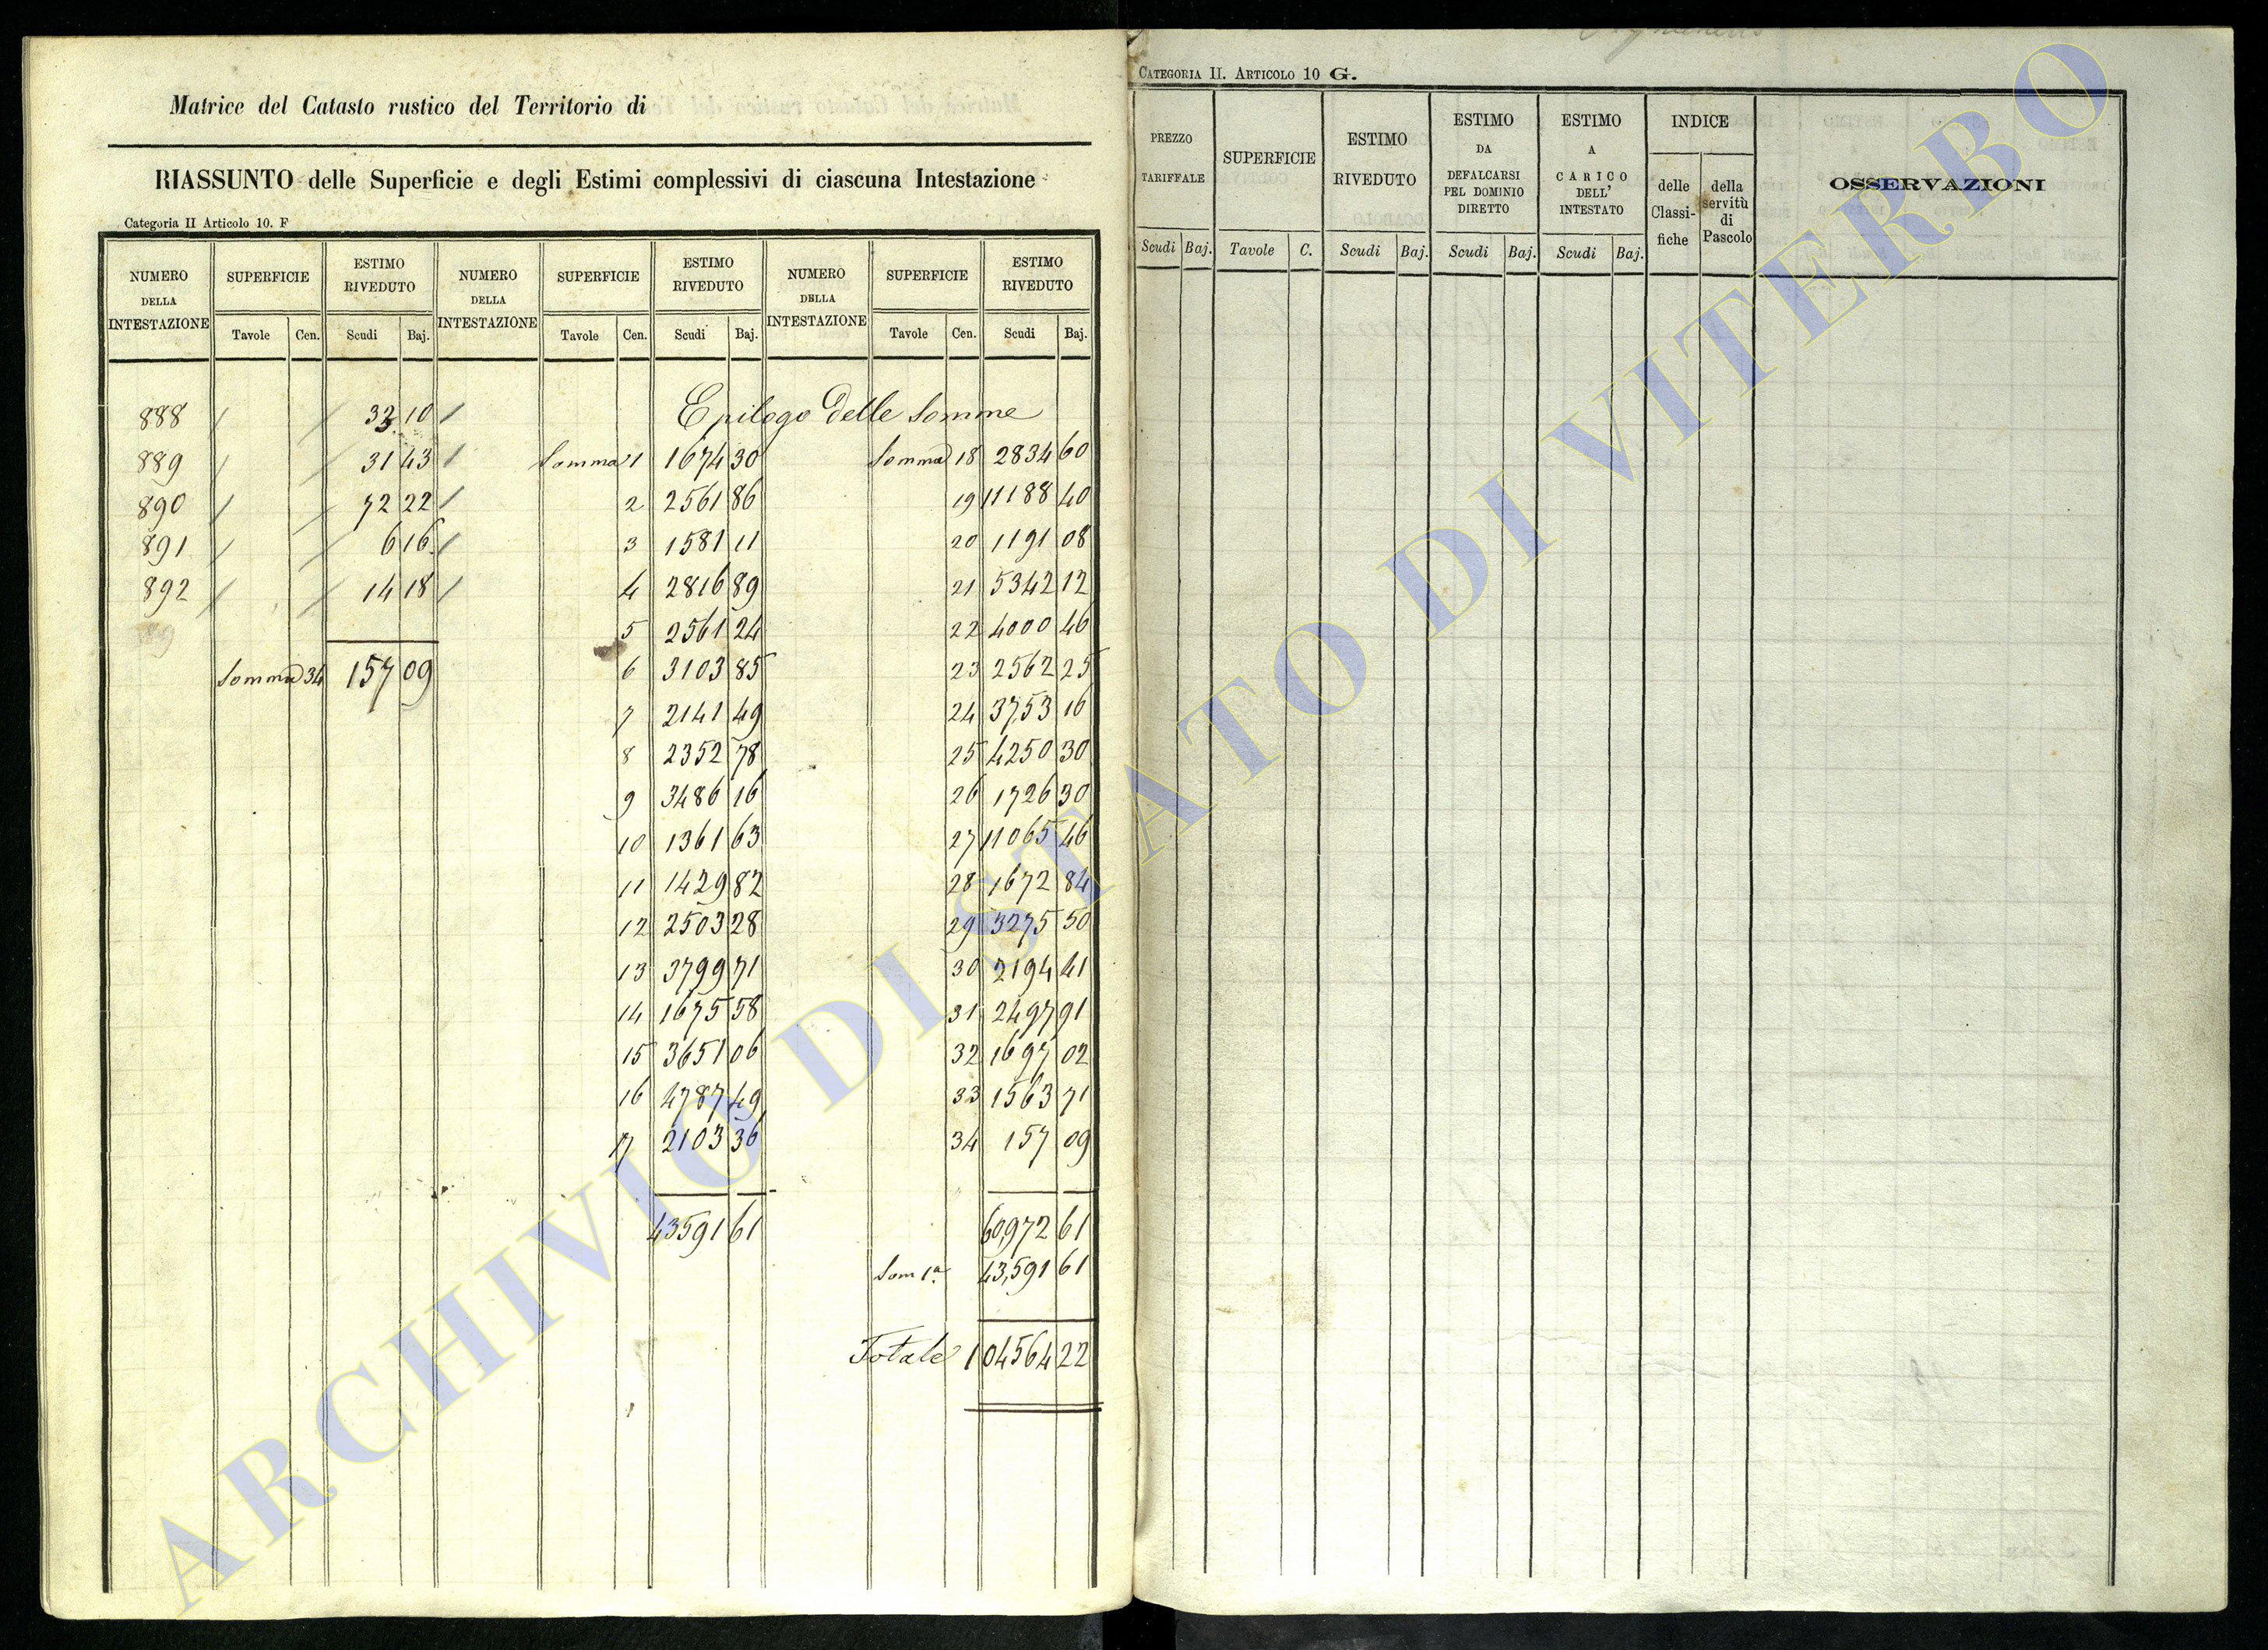 Matrice del Catasto rustico del Territorio di
RIASSUNTO delle Superficie e degli Estimi complessivi di ciascuna Intestazione
Categoria II Articolo 10. F
NUMERO DELLA INTESTAZIONE SUPERFICIE ESTIMO RIVEDUTO NUMERO DELLA INTESTAZIONE SUPERFICIE ESTIMO RIVEDUTO NUMERO DELLA INTESTAZIONE SUPERFICIE ESTIMO RIVEDUTO
Tavole Cen. Scudi Baj. Tavole Cen. Scudi Baj. Tavole Cen. Scudi Baj.
888 / / 33 10 / Epilogo delle Somme
889 / / 31 43 / Somma 1 1674 30 Somma 18 2834 60
890 / / 72 22 / 2 2561 86 19 11188 40
891 / / 6 16 / 3 1581 11 20 1191 08
892 / / 14 18 / 4 2816 89 21 5342 12
5 2561 24 22 4000 46
Somma 34 157 09 6 3103 85 23 2562 25
7 2141 49 24 3753 16
8 2352 78 25 4250 30
9 3486 16 26 1726 30
10 1361 63 27 11065 46
11 1429 82 28 1672 84
12 2503 28 29 3275 50
13 3799 71 30 2194 41
14 1675 58 31 2497 91
15 3651 06 32 1697 02
16 4787 49 33 1563 71
17 2103 36 34 157 09
43591 61 60,972 61
Som 1ª 43,591 61
Totale 104564 22
CATEGORIA II. ARTICOLO 10 G.
PREZZO TARIFFALE SUPERFICIE ESTIMO RIVEDUTO ESTIMO DA DEFALCARSI PEL DOMINIO DIRETTO ESTIMO A CARICO DELL' INTESTATO INDICE OSSERVAZIONI
delle Classifi-fiche della servitù di Pascolo
Scudi Baj. Tavole C. Scudi Baj. Scudi Baj. Scudi Baj.
ARCHIVIO DI STATO DI VITERBO